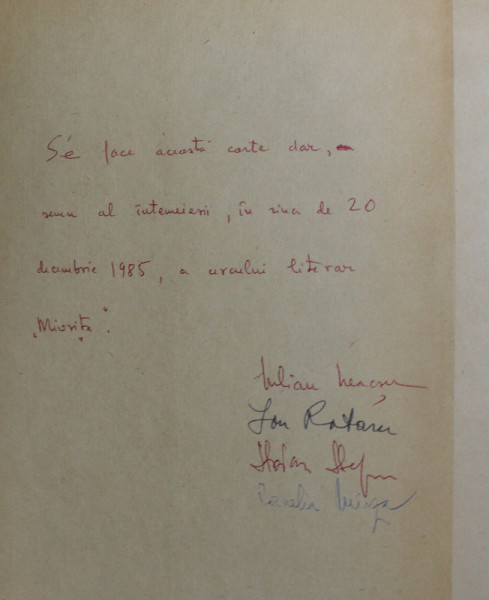 Se face această carte dar,
semn al întemeierii, în ziua de 20
decembrie 1985, a cercului literar
„Miorița".
Iulian Neacșu
Ion Rotaru
Stoian Ștefan
Cornelia